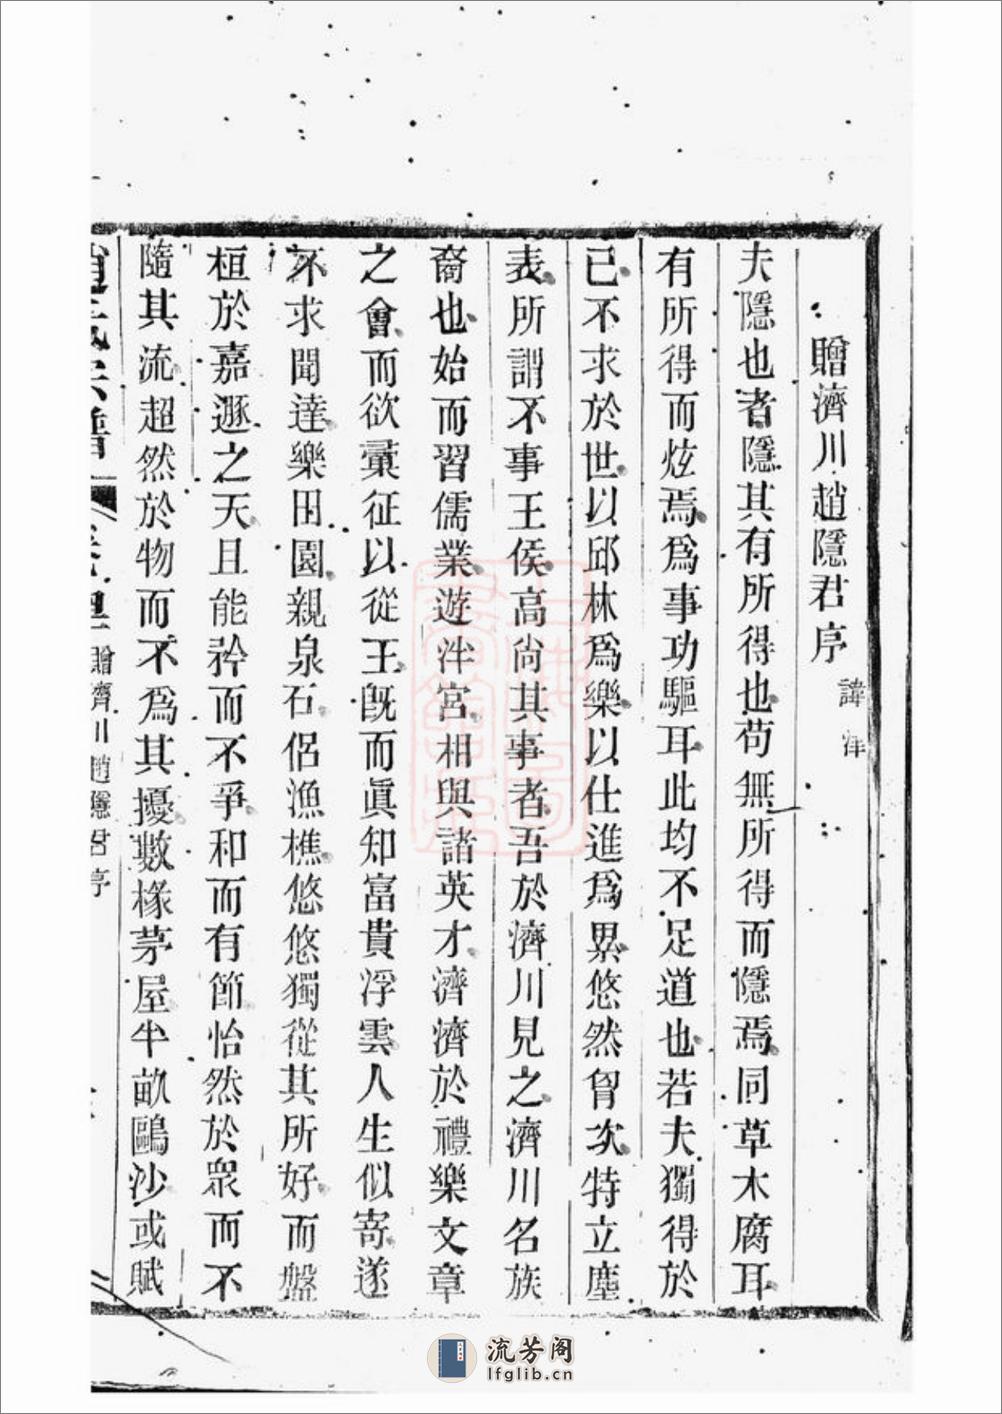 贈濟川趙隱君序 諱洋
夫隱也者隱其有所得也苟無所得而隱焉同草木腐耳
有所得而炫焉爲事功驅耳此均不足道也若夫獨得於
己不求於世以邱林爲樂以仕進爲累悠然胷次特立塵
表所謂不事王侯高尚其事者吾於濟川見之濟川名族
裔也始而習儒業遊泮宮相與諸英才濟濟於禮樂文章
之會而欲彙征以從王旣而眞知富貴浮雲人生似寄遂
不求聞達樂田園親泉石侶漁樵悠悠獨從其所好而盤
桓於嘉遯之天且能矜而不爭和而有節怡然於衆而不
隨其流超然於物而不爲其擾數椽茅屋半畝鷗沙或賦
趙氏宗譜
贈濟川趙隱君序
流芳阁
lfglib.cn